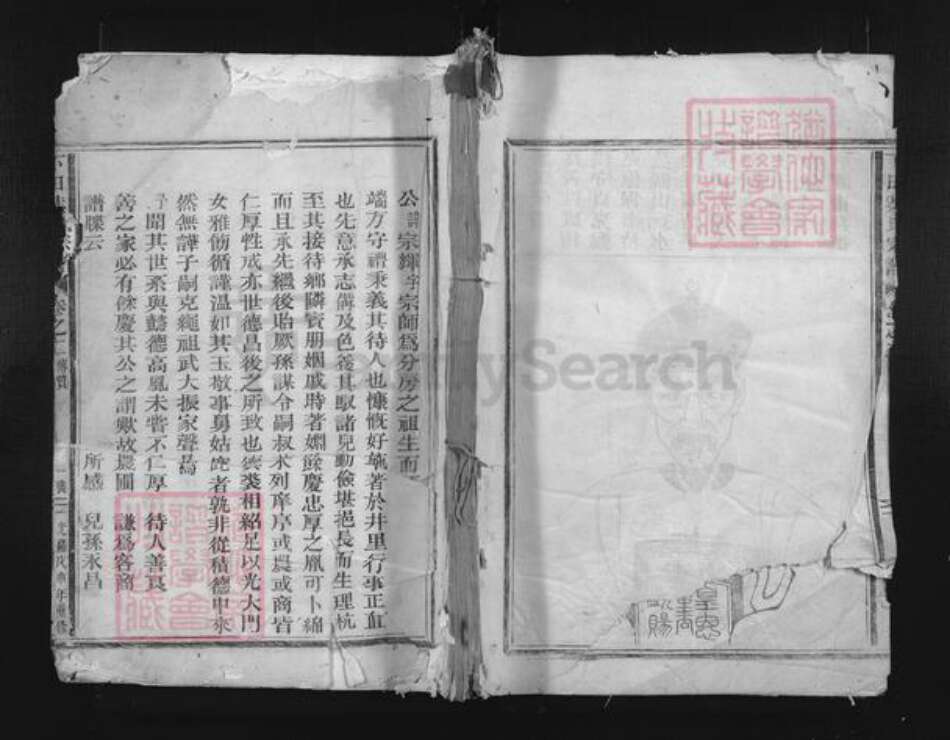 公諱宗輝字宗師爲分房之祖生而
端方守禮秉義其待人也慷慨好施著於井里行事正直
也先意承志備及色養其馭諸兒動儉堪挹長而生理杭
至其接待鄉隣賓朋姻戚時著嫺餘慶忠厚之風可卜綿
而且承先繼後貽厥孫謀令嗣叔求列庠序或農或商皆
仁厚性成亦世德昌後之所致也裘相紹足以光大門
女雅飭循謹溫如其玉敬事舅姑者孰非從積德中來
然無諱子嗣克繩祖武大振家聲焉
予聞其世系與懿德高風未嘗不仁厚 待人善良
善之家必有餘慶其公之謂歟故農圃 謙爲客商
譜牒云 所感 兒孫永昌
卷之二 傳贊
光緒戊 年重修
皇恩
賜
FamilySearch
猶他家譜學會特藏
猶他家譜學會特藏